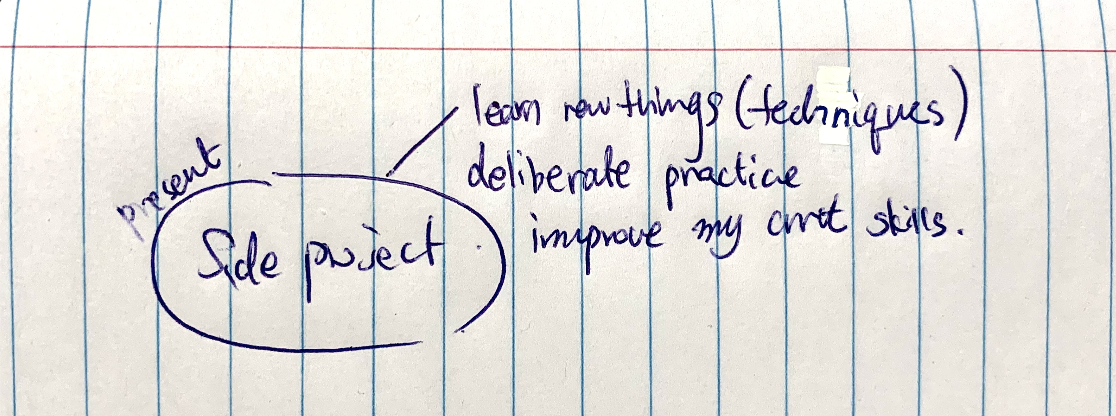 learn new things (techniques)
deliberate practice
improve my crrnt skills.
present
Side project